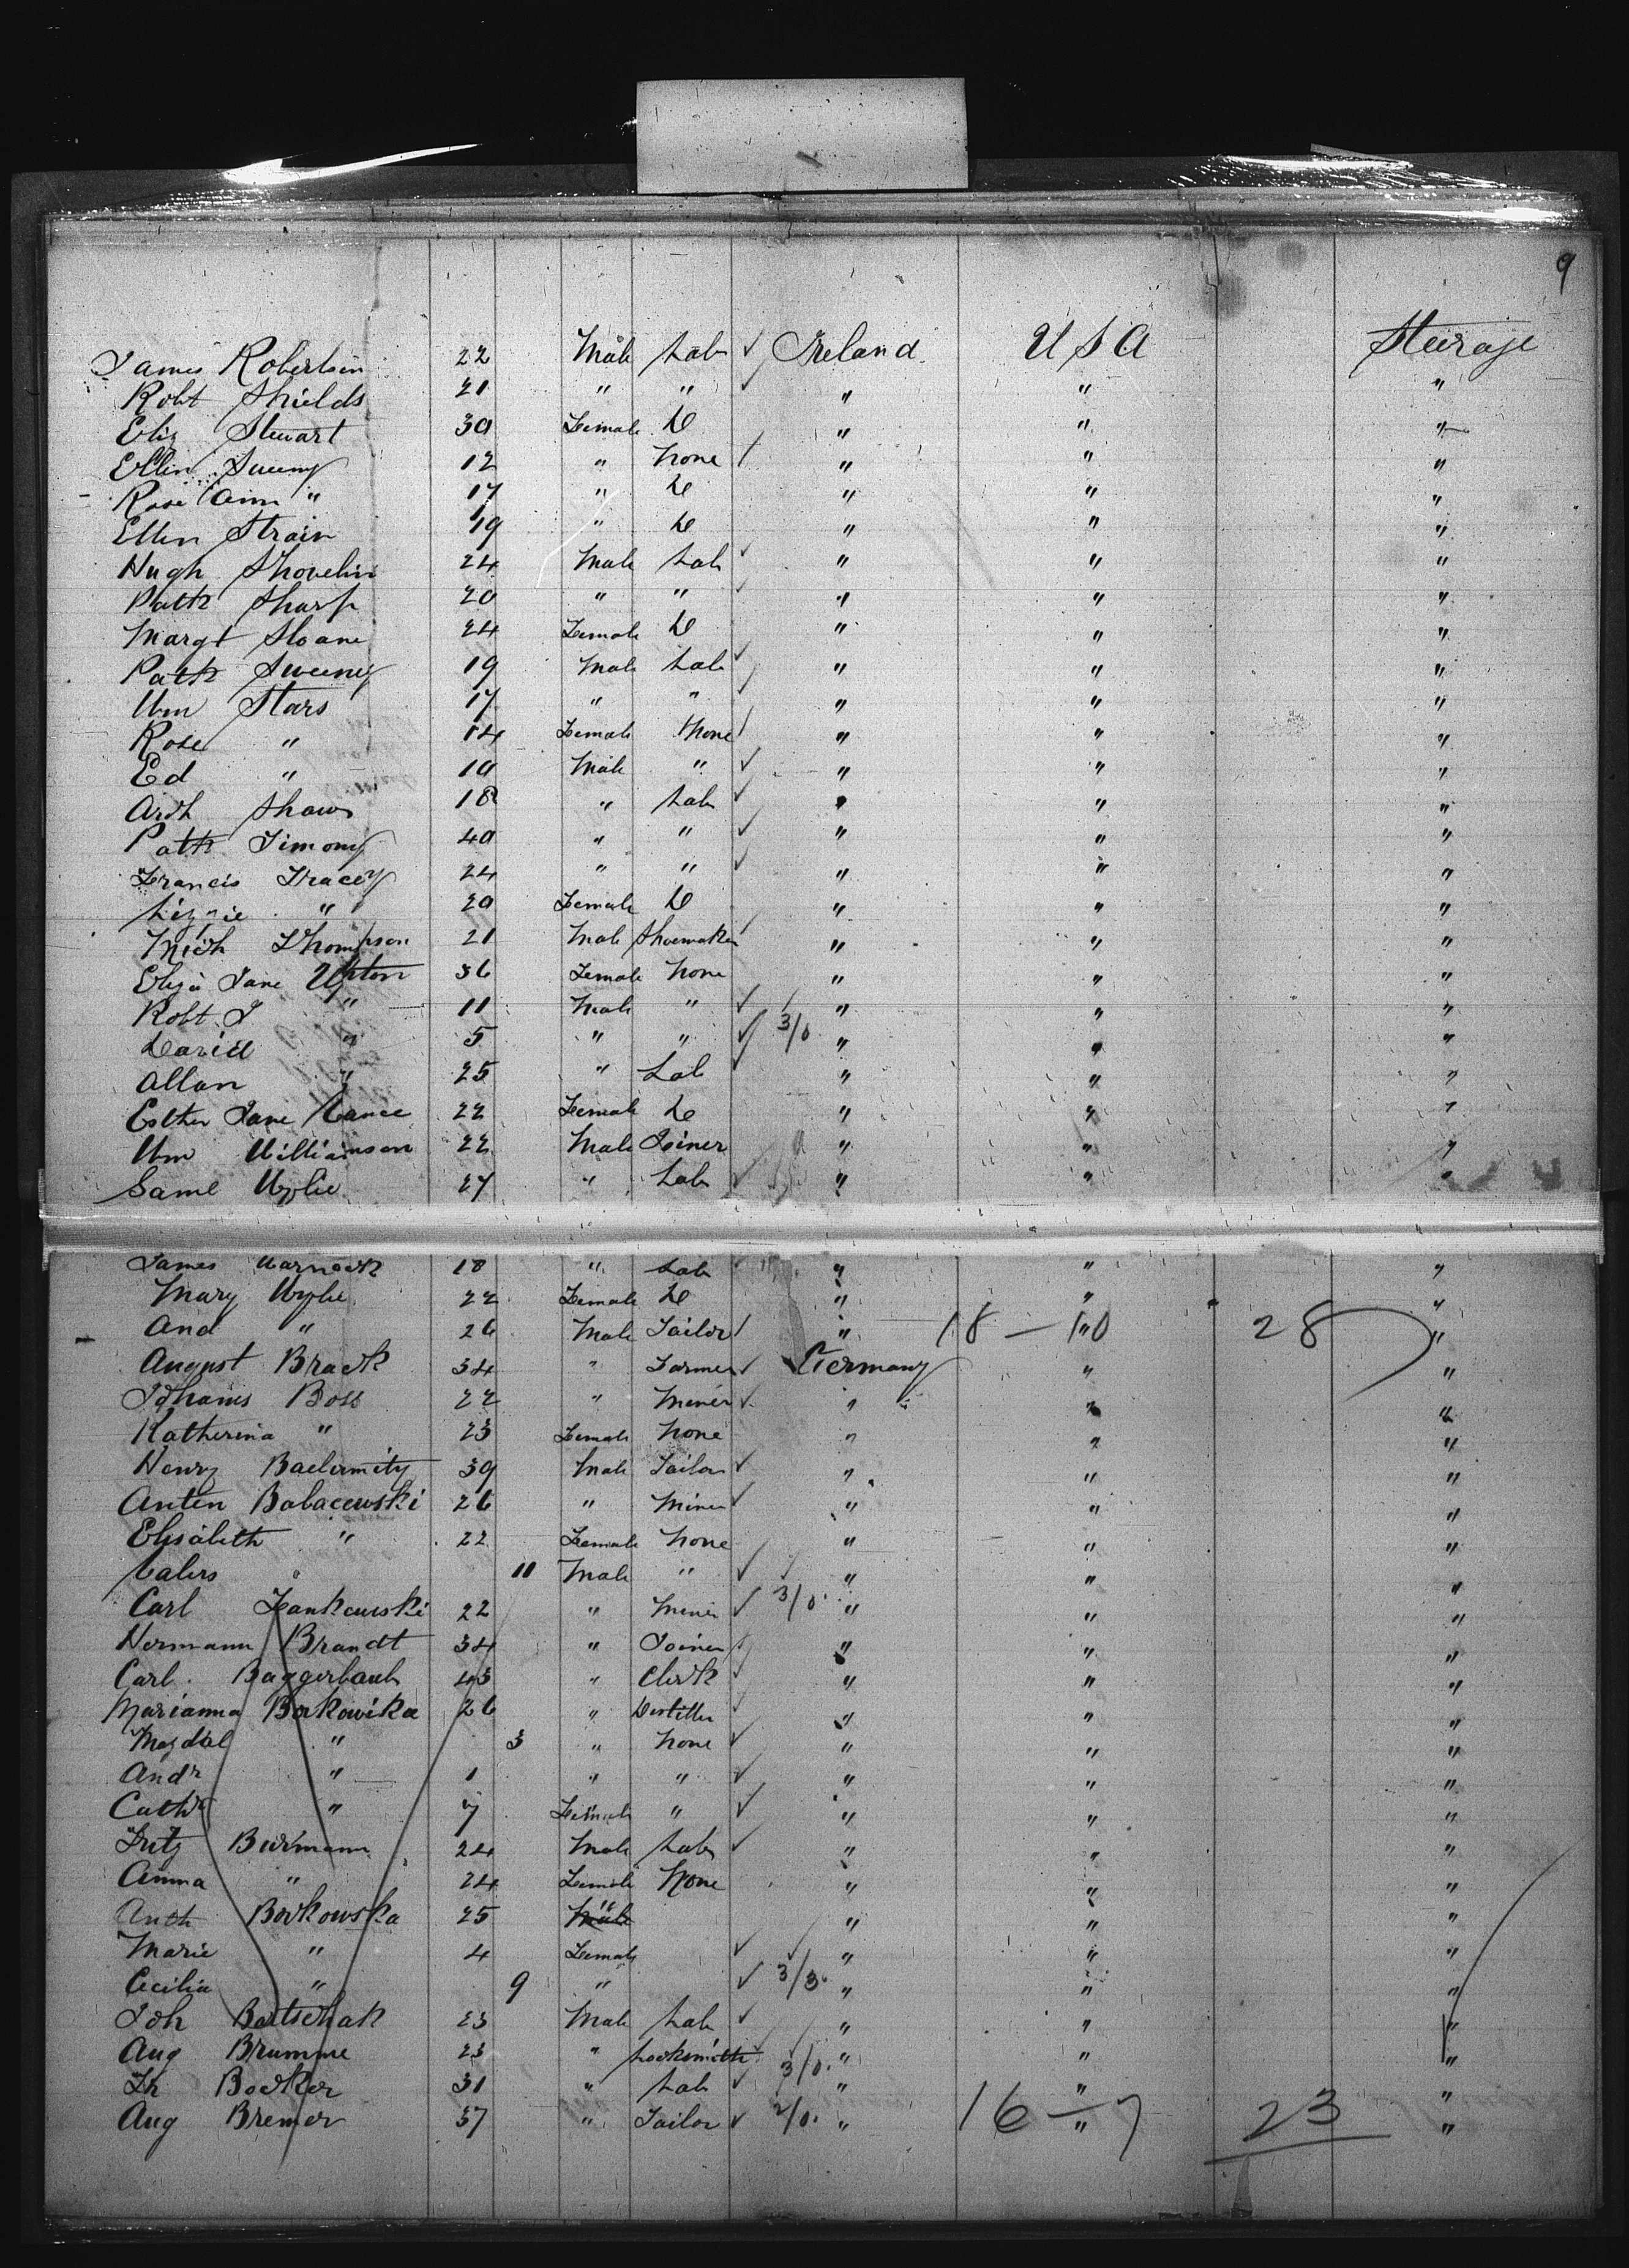 9
James Robertson 22 Male Lab ✓ Ireland USA Steerage
Robt Shields 21 " " ✓ " " "
Eliz Stewart 30 Female D " " "
Ellen Sweeny 12 " None / " " "
Rose Ann " 17 " D " " "
Ellen Strain 19 " D " " "
Hugh Shovelin 24 Male Lab ✓ " " "
Patk Sharp 20 " " ✓ " " "
Margt Sloane 24 Female D " " "
Patk Sweeney 19 Male Lab ✓ " " "
Wm Stars 17 " " " " "
Rose " 14 Female None / " " "
Ed " 10 Male " ✓ " " "
Arch Shaw 18 " Lab ✓ " " "
Patk Timony 40 " " ✓ " " "
Francis Tracey 24 " " ✓ " " "
Lizzie " 20 Female D " " "
Mich Thompson 21 Male Shoemaker " " "
Eliza Jane Upton 36 Female None " " "
Robt J " 11 Male " ✓ " " "
David " 5 " " ✓ 3/0 " " "
Allan " 25 " Lab " " "
Esther Jane Vance 22 Female D " " "
Wm Williamson 22 Male Joiner " " "
Saml Wylie 27 " Lab ✓ " " "
James Warnock 18 " Lab " " "
Mary Wylie 22 Female D " " "
And " 26 Male Tailor / " 18 — 10 " 28 "
August Brack 34 " Farmer ✓ Germany " "
Johanes Boss 22 " Miner ✓ " " "
Katherina " 23 Female None " " "
Henry 39 Male Tailor ✓ " " "
Anten Babacewski 26 " Miner ✓ " " "
Elisabeth " 22 Female None " " "
" 11 Male " ✓ " " "
Carl 22 " Miner ✓ 3/0 " " "
Hermann Brandt 34 " Joiner " " "
Carl 43 " Clerk ✓ " " "
Marianna 26 " Distiller ✓ " " "
Magdal " 3 " None ✓ " " "
Andr " 1 " " ✓ " " "
Cath " 7 Female " ✓ " " "
Fritz 24 Male Lab ✓ " " "
Anna " 24 Female None " " "
Anth Borkowska 25 " " " "
Marie " 4 Female ✓ " " "
Cecilia " 9 " ✓ 3/3 " " "
Joh 23 Male Lab ✓ " " "
Aug Brumme 23 " Locksmith ✓ 3/0 " " "
Fr Becker 31 " Lab ✓ " " "
Aug Bremer 37 " Tailor ✓ 2/0 " 16 — 7 " 23 "